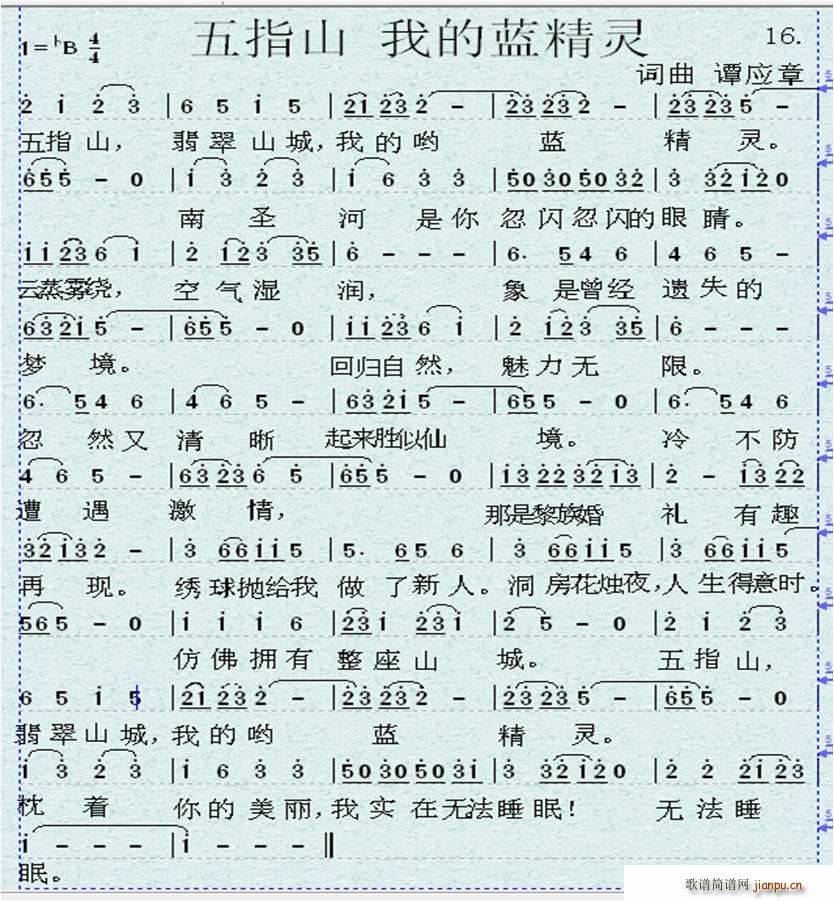 五指山 我的蓝精灵
16.
1=ᵇB 4/4
词曲 谭应章
2 1 2 3 | 6 5 1 5 | 21 23 2 - | 23 23 2 - | 23 23 5 -
五指山, 翡翠山城,我的哟 蓝 精 灵。
655 - 0 | 1 3 2 3 | 1 6 3 3 | 50 30 50 32 | 3 32 12 0
南圣河 是你 忽闪忽闪的眼睛。
11 23 6 1 | 2 12 3 35 | 6 - - - | 6. 5 4 6 | 4 6 5 -
云蒸雾绕, 空气湿润, 象是曾经遗失的
63 21 5 - | 65 5 - 0 | 11 23 6 1 | 2 12 3 35 | 6 - - -
梦境。 回归自然, 魅力无限。
6. 5 4 6 | 4 6 5 - | 63 21 5 - | 65 5 - 0 | 6. 5 4 6
忽然又清晰 起来胜似仙境。 冷不防
4 6 5 - | 63 23 6 5 | 65 5 - 0 | 13 22 32 13 | 2 - 13 22
遭遇激情, 那是黎族婚礼有趣
32 13 2 - | 3 66 11 5 | 5. 6 5 6 | 3 66 11 5 | 3 66 11 5
再现。 绣球抛给我做了新人。洞房花烛夜,人生得意时。
56 5 - 0 | 1 1 1 6 | 23 1 23 1 | 2 5 - 0 | 2 1 2 3
仿佛拥有整座山城。 五指山,
6 5 1 5 | 21 23 2 - | 23 23 2 - | 23 23 5 - | 65 5 - 0
翡翠山城,我的哟 蓝 精 灵。
1 3 2 3 | 1 6 3 3 | 50 30 50 31 | 3 32 12 0 | 2 2 21 23
枕着 你的美丽,我实在无法睡眠! 无法睡
1 - - - | 1 - - - ‖
眠。
歌谱简谱网 jianpu.cn